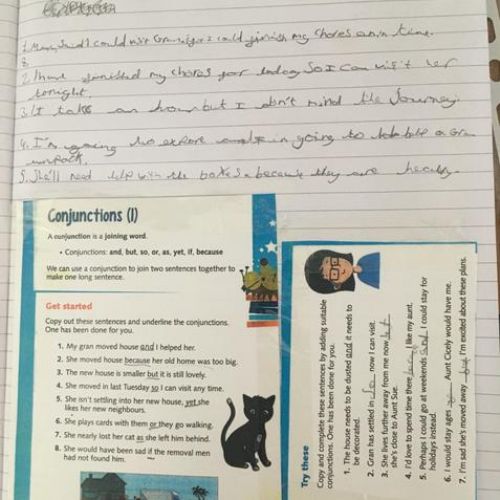 1. Mum said I could visit Gran if I could finish my chores on time.
2. I have finished my chores for today so I can visit her
tonight.
3. It takes an hour but I don't mind the journey.
4. I'm going to explore in going to
unpack.
5. She'll need help with the boxes because they are heavy.
Conjunctions (1)
A conjunction is a joining word.
• Conjunctions: and, but, so, or, as, yet, if, because
We can use a conjunction to join two sentences together to
make one long sentence.
Get started
Copy out these sentences and underline the conjunctions.
One has been done for you.
1. My gran moved house and I helped her.
2. She moved house because her old home was too big.
3. The new house is smaller but it is still lovely.
4. She moved in last Tuesday so I can visit any time.
5. She isn't settling into her new house, yet she
likes her new neighbours.
6. She plays cards with them or they go walking.
7. She nearly lost her cat as she left him behind.
8. She would have been sad if the removal men
had not found him.
Try these
Copy and complete these sentences by adding suitable
conjunctions. One has been done for you.
1. The house needs to be dusted and it needs to
be decorated.
2. Gran has settled in so now I can visit.
3. She lives further away from me now but
she's close to Aunt Sue.
4. I'd love to spend time there I like my aunt.
5. Perhaps I could go at weekends and I could stay for
holidays instead.
6. I would stay ages Aunt Cicely would have me.
7. I'm sad she's moved away but I'm excited about these plans.